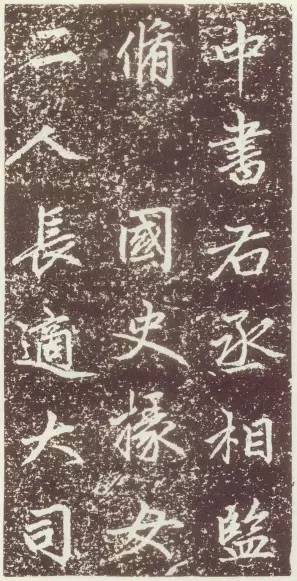 中書右丞相監
脩國史據女
二人長適大司